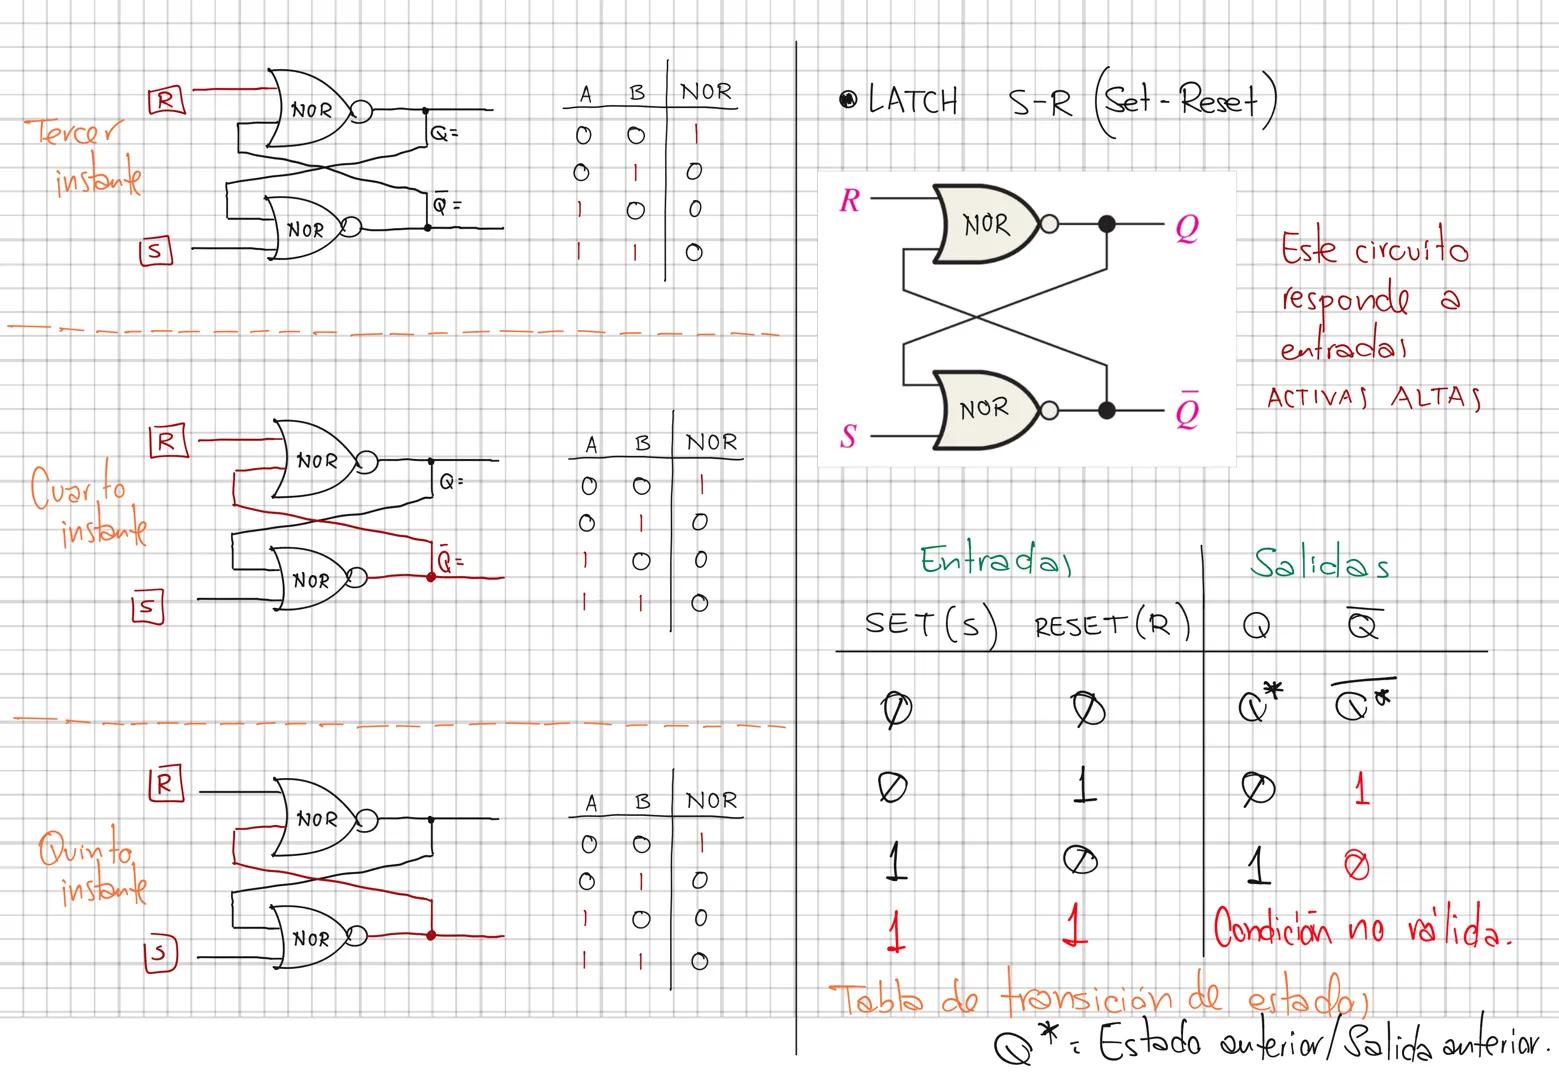 R
NOR
Q=
Tercer
instante
Q̅=
NOR
S
A B NOR
0 0 1
0 1 0
1 0 0
1 1 0
R
NOR
Q=
Cuarto
instante
Q̅=
NOR
S
A B NOR
0 0 1
0 1 0
1 0 0
1 1 0
R
NOR
Quinto
instante
NOR
S
A B NOR
0 0 1
0 1 0
1 0 0
1 1 0
LATCH S-R (Set-Reset)
R
NOR
Q
NOR
Q̅
S
Este circuito
responde a
entradas
ACTIVAS ALTAS
Entradas Salidas
SET(S) RESET(R) Q Q̅
0 0 Q* Q̅*
0 1 0 1
1 0 1 0
1 1 Condición no válida.
Tabla de transición de estados
Q* = Estado anterior/Salida anterior.